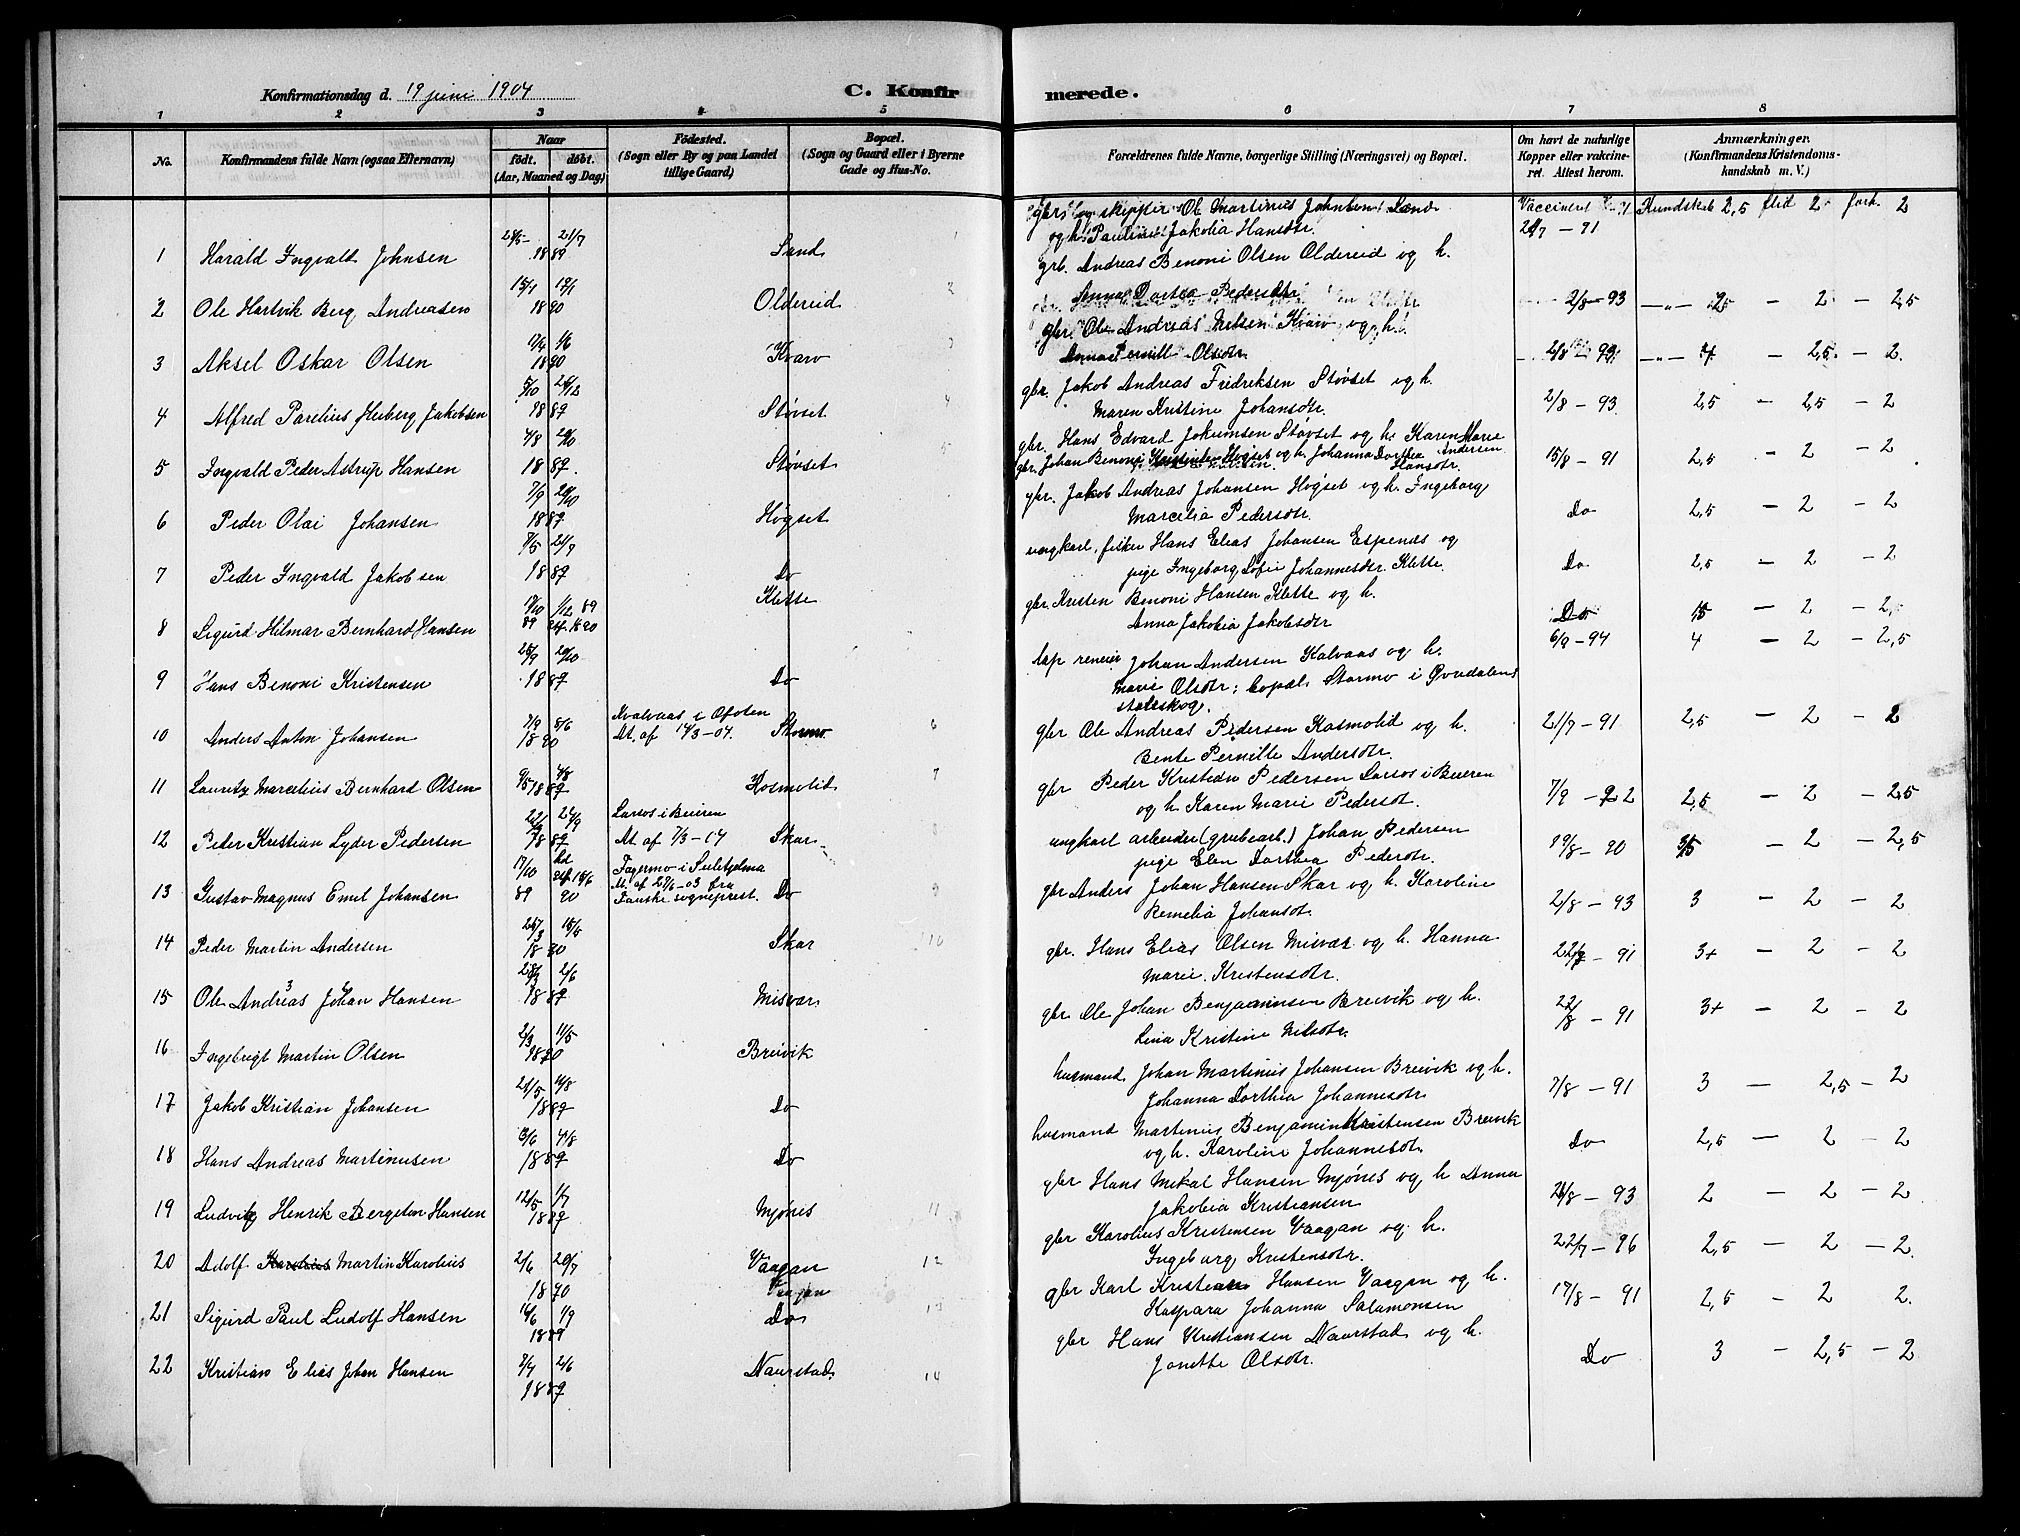 Konfirmationsdag d. 19 juni 1904
C. Konfirmerede.
1 2 3 4 5 6 7 8
No.
Konfirmandens fulde Navn (ogsaa Efternavn)
Naar
født. døbt.
(Aar, Maaned og Dag)
Fødested.
(Sogn eller By og paa Landet
tillige Gaard)
Bopæl.
(Sogn og Gaard eller i Byerne
Gade og Hus-No.
Forældrenes fulde Navne, borgerlige Stilling (Næringsvei) og Bopæl.
Om havt de naturlige
Kopper eller vakcine-
ret. Attest herom.
Anmærkninger.
(Konfirmandens Kristendoms-
kundskab m. V.)
1 Harald Ingvald Johnsen 21/7 1889 Sand gbr. og skipper Ole Martinus Johnsen Sand
og h. Pauline Jakobia Hansdtr. Vaccineret 21/7 – 91 Kundskab 2,5 flid 2 forh. 2
2 Ole Hartvik Berg Andreasen 15/1 17/1 1890 Oldereid grb. Andreas Benoni Olsen Oldereid og h.
Anna Dortea Pedersdtr. 2/8 – 93 2,5 – 2 – 2,5
3 Aksel Oskar Olsen 1/6 1890 Kvarv gbr. Ole Andreas Nielsen Kvarv og h.
Anna Pernill Olsdtr. 2/8 – 93 4 – 2,5 – 2
4 Alfred Parelius Heiberg Jakobsen 5/10 26/12 1889 Støvset gbr. Jakob Andreas Fredriksen Støvset og h.
Maren Kristine Johansdtr. 2/8 – 93 2,5 – 2,5 – 2
5 Ingvald Peder Astrup Hansen 4/8 20/10 1889. Støvset gbr. Hans Edvard Jokumsen Støvset og h. Karen Marie
Hansdtr. 15/8 – 91 2,5 – 2 – 2
6 Peder Olai Johansen 7/9 20/10 1889 Høgset gbr. Johan Benoni Kristensen Høgset og h. Johanna Dorthea Andersen
Do 2,5 – 2 – 2
7 Peder Ingvald Jakobsen 7/5 21/7 1889 Do gbr. Jakob Andreas Johansen Høgset og h. Ingeborg
Marcelia Pedersdtr. Do 2,5 – 2 – 2
8 Sigurd Hilmar Bernhard Hansen 89 1/12 89 Klette ungkarl, fisker Hans Elias Johansen Espenæs og
pige Ingeborg Sofie Johannesdtr. Klette. Do – 2 – 2,
9 Hans Benoni Kristensen 25/9 20/10 1889 Do gbr. Kristen Benoni Hansen Klette og h.
Anna Jakobia Jakobsdtr 6/9 – 94 4 – 2 – 2,5
10 Anders Anton Johansen 7/9 8/6 1890 Kvalvaas i Ofoten
At. af 14/3–04. Stormo lap reneier Johan Andersen Kalvaas og h.
Marie Olsdtr; bopæl Stormo i Govdalens
statsskog. 21/7 – 91 2,5 – 2 – 2
11 Lauritz Marcelius Bernhard Olsen 9/5 4/8 1889 Kosmolid gbr Ole Andreas Pedersen Kosmolid og h.
Bente Pernille Andersdtr. 7/9 – 92 2,5 – 2 – 2,5
12 Peder Kristian Lyder Pedersen 1889 Larsos i Beieren
At af 7/3–04 Skar gbr Peder Kristian Pedersen Larsos i Beieren
og h. Karen Marie Pedersdt. 19/8 – 90 – 2 – 2,5
13 Gustav Magnus Emil Johansen 17/10 89 90 Fagermo i Sulitjelma
At. af 27/6–03 fra
Fauske sogneprest. Do ungkarl arbeider (grubearb.) Johan Pedersen
pige Elen Dorthea Pedersdtr. 2/8 – 93 3 – 2 – 2
14 Peder Martin Andersen 1890 Skar gbr Anders Johan Hansen Skar og h. Karoline
Remelia Johansdt. 22/7 – 91 3+ – 2 – 2
15 Ole Andreas Johan Hansen 2/6 1889 Misvær gbr. Hans Elias Olsen Misvær og h. Hanna
Marie Kristensdtr. 22/8 – 91 3+ – 2 – 2
16 Ingebrigt Martin Olsen 2/3 11/5 1890 Breivik gbr Ole Johan Benjaminsen Breivik og h.
Lina Kristine Nilsdtr. 7/8 – 91 3 – 2,5 – 2
17 Jakob Kristian Johansen 1889 Do husmand Johan Martinus Johansen Breivik og h.
Johanna Dorthea Johannesdtr Do 2,5 – 2 – 2
18 Hans Andreas Martinusen 4/8 1889 Do husmand Martinus Benjamin Kristensen Breivik
og h. Karoline Johannesdt. 93 2 – 2 – 2
19 Ludvig Henrik Bergeton Hansen 12/5 1/7 1889 Mjønes 11 gbr Hans Mekal Hansen Mjønes og h Anna
Jakobia Kristiansen 22/7 – 96 2,5 – 2 – 2.
20 Adolf Martin Karolius 2/6 20/7 1890 Vaagan 12 gbr Karolius Kristensen Vaagan og h.
Ingeborg Kristensdtr. 17/8 – 91 2,5 – 2 2.
21 Sigurd Paul Ludolf Hansen 1/9 1889 Do 13 gbr Karl Kristian Hansen Vaagan og h.
Kaspara Johanna Salamonsen
22 Kristian Elias Johan Hansen 7/4 2/6 1889 Naurstad 14 gbr Hans Kristiansen Naurstad og h.
Jonette Olsdtr. Do 3 – 2,5 – 2